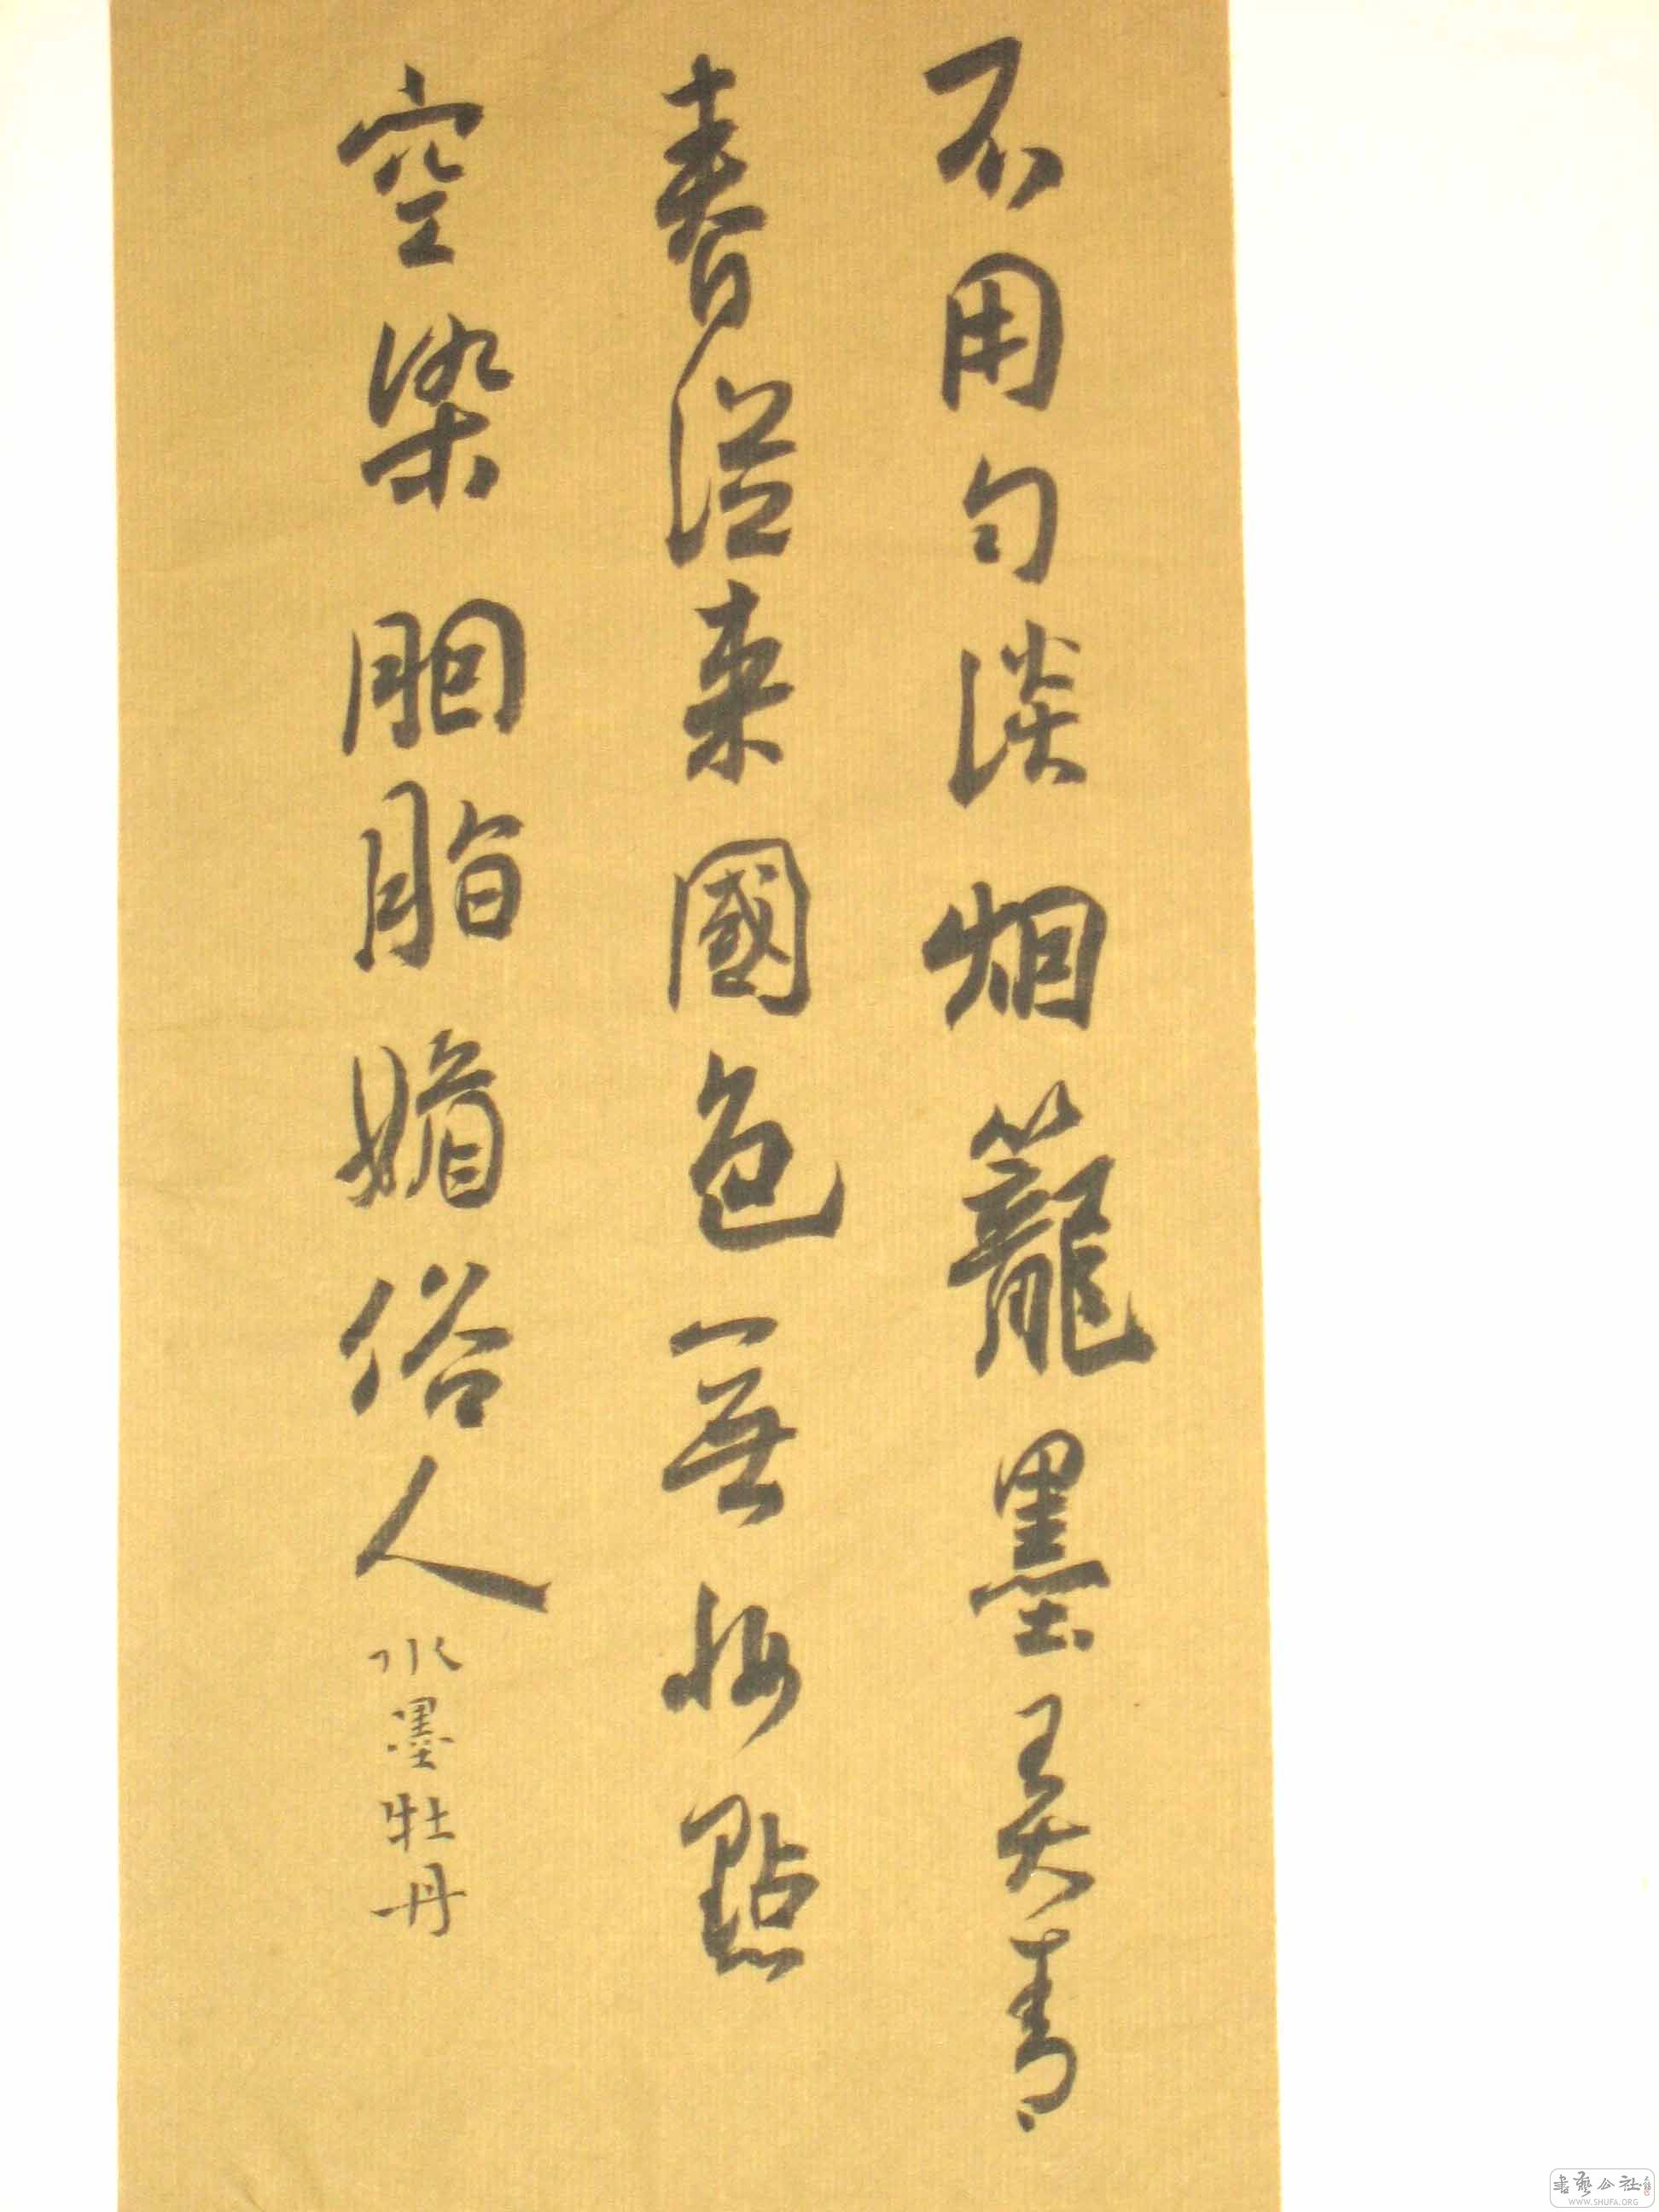 不用勻淡烟籠墨美青
春溢来國色無點
空染胭脂媚俗人
水墨牡丹
書藝公社
WWW.SHUFA.ORG